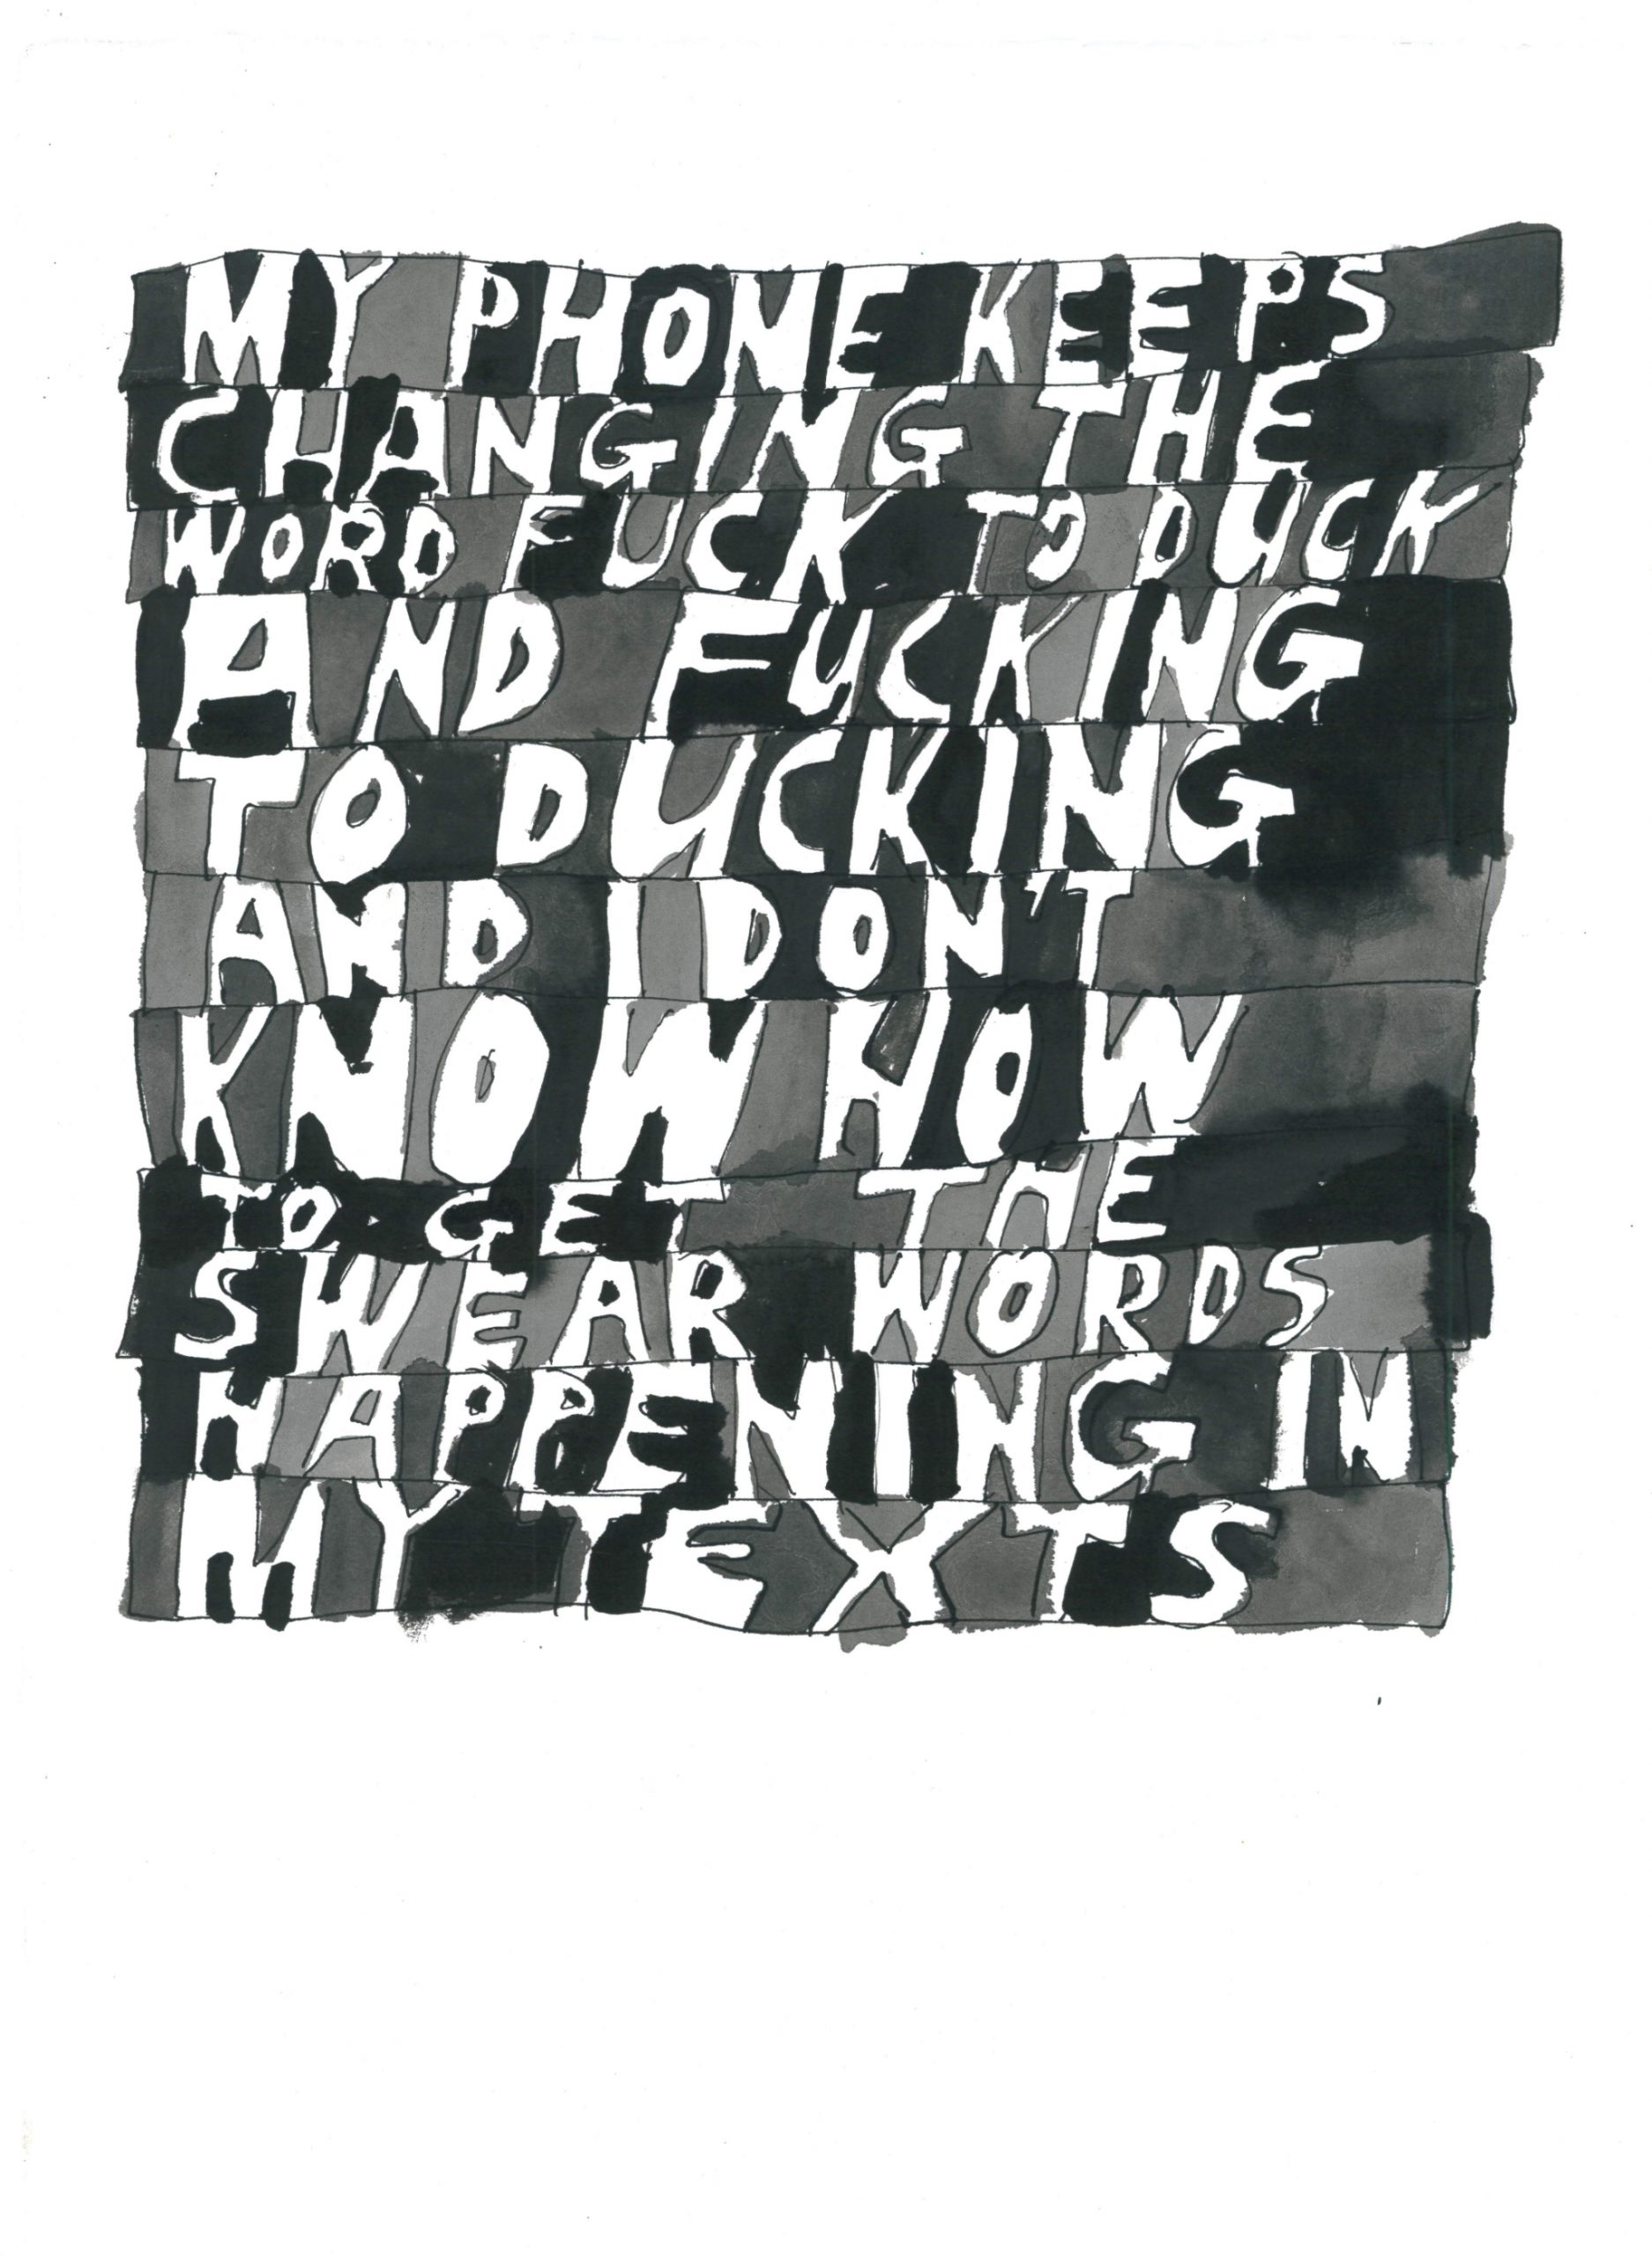 MY PHONE KEEPS
CHANGING THE
WORD FUCK TO DUCK
AND FUCKING
TO DUCKING
AND I DON'T
KNOW HOW
TO GET THE
SWEAR WORDS
HAPPENING IN
MY TEXTS